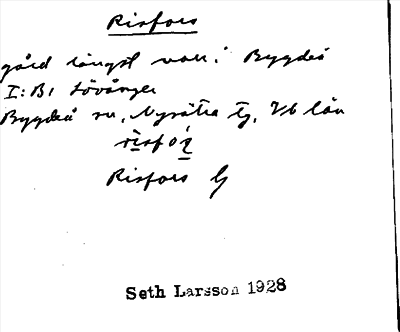 Risfors
gård längst norr i Bygdeå
I: B1 Lövånger
Bygdeå sn, Nysätra tg, Vb län
risfór
Risfors G
Seth Larsson 1928